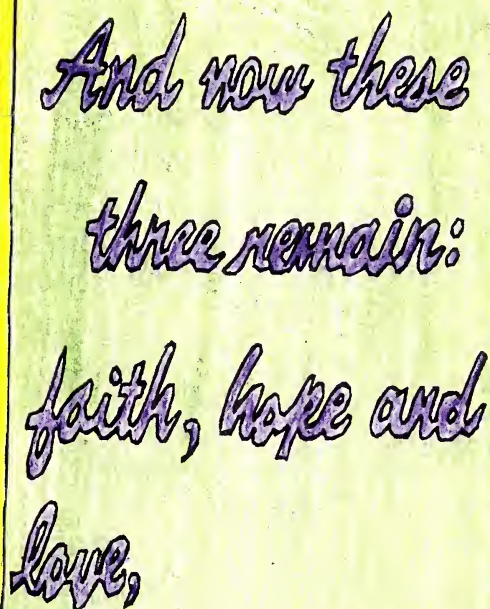 And now these
three remain:
faith, hope and
love,